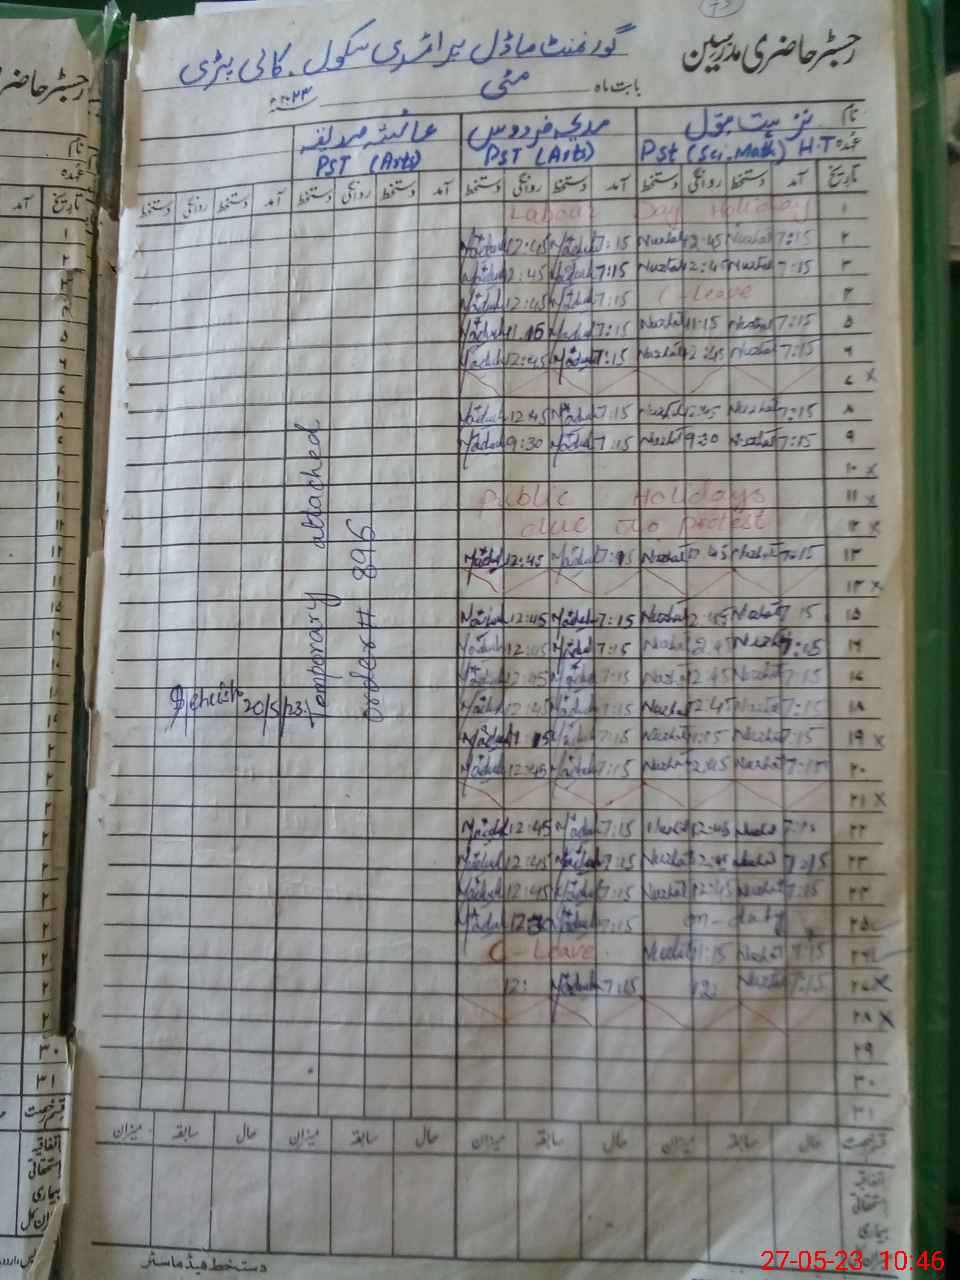 رجسٹر حاضری مدرسین
گورنمنٹ ماڈل پرائمری سکول
بابت ماہ مئی ۲۰۲۳
نام نزہت بتول مدیحہ فردوس عائشہ صدیقہ
عہدہ H.T Pst (Sci.Math) PST (Arts) PST (Arts)
تاریخ آمد دستخط روانگی دستخط آمد دستخط روانگی دستخط آمد دستخط روانگی دستخط آمد دستخط روانگی دستخط
۱ Labour Day Holiday
۲ 7:15 Nuzhat 12:45 Nuzhat 7:15 Madiha 12:45 Madiha
۳ 7:15 Nuzhat 12:45 Nuzhat 7:15 Madiha 12:45 Madiha
۴ C-Leave 7:15 Madiha 12:45 Madiha
۵ 7:15 Nuzhat 11:15 Nuzhat 7:15 Madiha 11:15 Madiha
۶ 7:15 Nuzhat 12:45 Nuzhat 7:15 Madiha 12:45 Madiha
۷ x
۸ 7:15 Nuzhat 12:45 Nuzhat 7:15 Madiha 12:45 Madiha
۹ 7:15 Nuzhat 9:30 Nuzhat 7:15 Madiha 9:30 Madiha
۱۰ x
۱۱ x Public Holidays
۱۲ x due to protest
۱۳ 7:15 Nuzhat 12:45 Nuzhat 7:15 Madiha 12:45 Madiha
۱۴ x
۱۵ 7:15 Nuzhat 12:45 Nuzhat 7:15 Madiha 12:45 Madiha
۱۶ 7:15 Nuzhat 12:45 Nuzhat 7:15 Madiha 12:45 Madiha
۱۷ 7:15 Nuzhat 12:45 Nuzhat 7:15 Madiha 12:45 Madiha
۱۸ 7:15 Nuzhat 12:45 Nuzhat 7:15 Madiha 12:45 Madiha
۱۹ x 7:15 Nuzhat 11:15 Nuzhat 7:15 Madiha 11:15 Madiha
۲۰ 7:15 Nuzhat 12:45 Nuzhat 7:15 Madiha 12:45 Madiha
۲۱ x
۲۲ 7:15 Nuzhat 12:45 Nuzhat 7:15 Madiha 12:45 Madiha
۲۳ 7:15 Nuzhat 12:45 Nuzhat 7:15 Madiha 12:45 Madiha
۲۴ 7:15 Nuzhat 12:45 Nuzhat 7:15 Madiha 12:45 Madiha
۲۵ on-duty 7:15 Madiha 12:30 Madiha
۲۶ 7:15 Nuzhat 11:15 Nuzhat C-Leave
۲۷ x 7:15 Nuzhat 12: 7:15 Madiha 12:
۲۸ x
۲۹
۳۰
۳۱
Temporary attached
order # 896
20/5/23
قسم رخصت حال سابقہ میزان حال سابقہ میزان حال سابقہ میزان حال سابقہ میزان
اتفاقیہ
استحقاقی
بیماری
دستخط ہیڈ ماسٹر
27-05-23 10:46